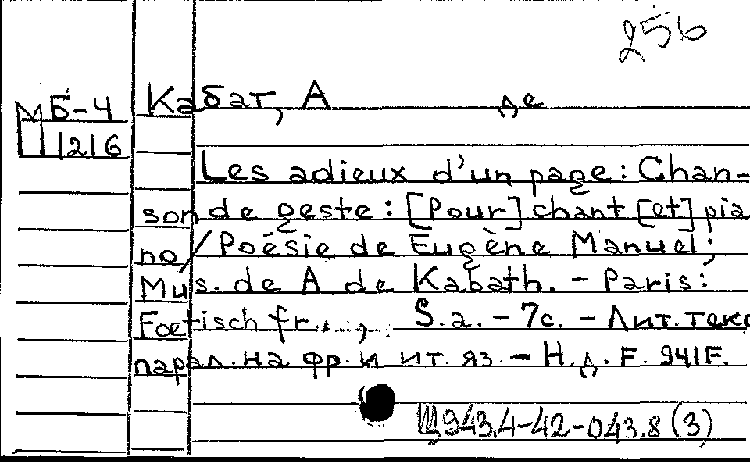 256
МБ-4
1216
Кабат, А де
Les adieux d'un page: Chan-
son de geste: [Pour] chant [et] pia
no / Poésie de Eugène Manuel;
Mus. de A de Kabath. - Paris:
Foetisch fr., S.a. - 7с. - Лит. текс
парал. на фр. и ит. яз. - Н.д. F. 941F.
Щ943.4-42-043.8 (3)